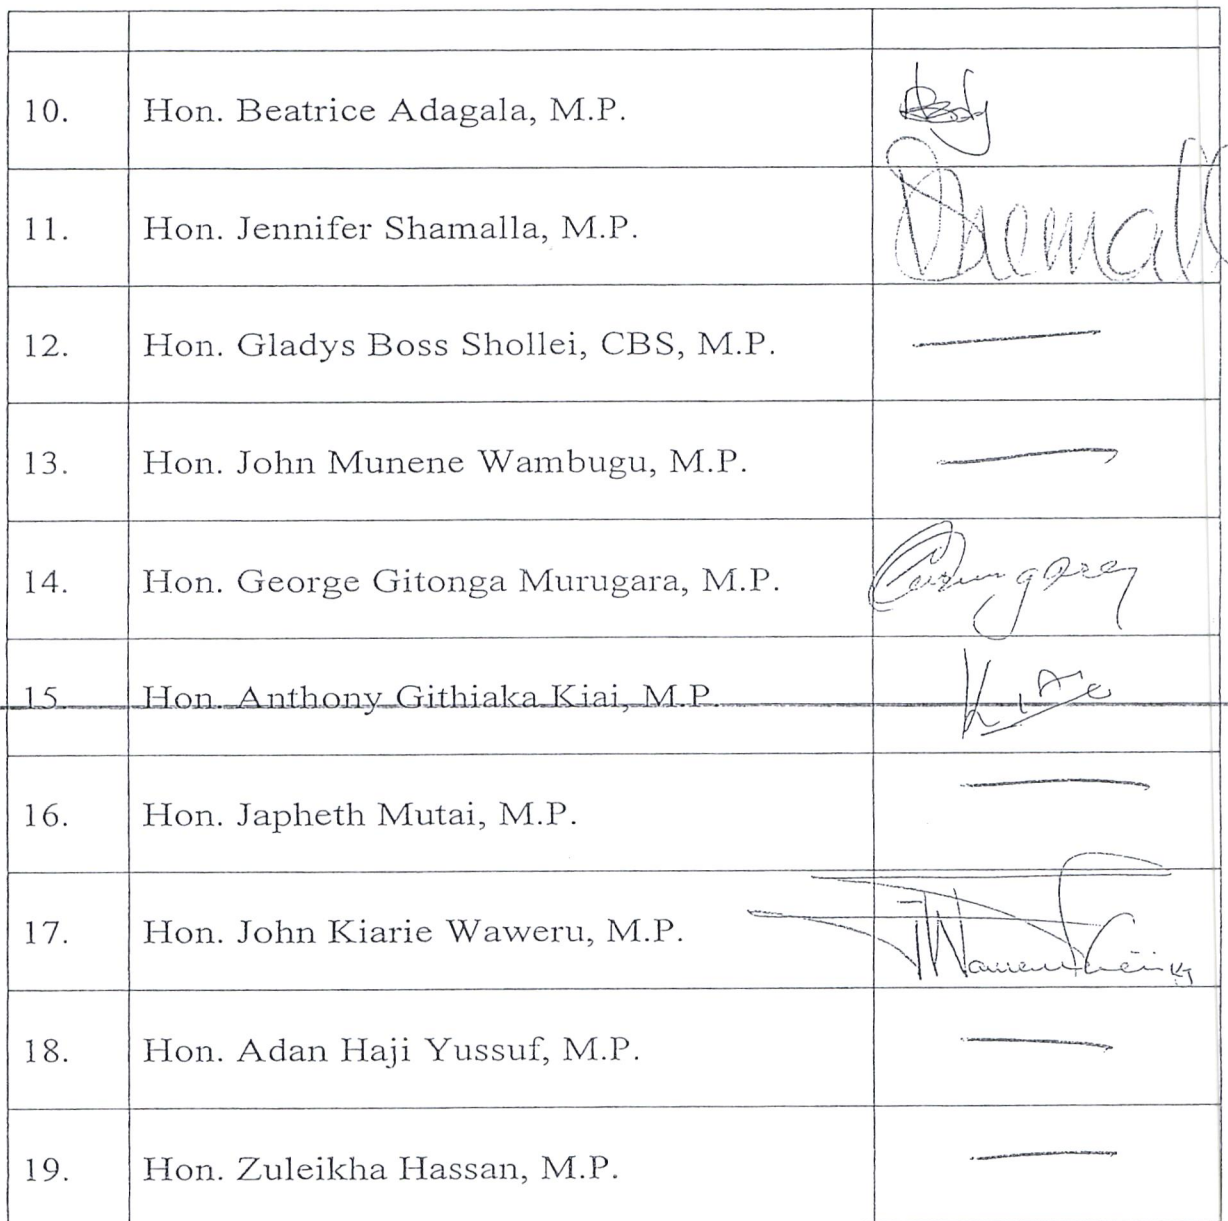 10. Hon. Beatrice Adagala, M.P.
11. Hon. Jennifer Shamalla, M.P.
12. Hon. Gladys Boss Shollei, CBS, M.P. —
13. Hon. John Munene Wambugu, M.P. —
14. Hon. George Gitonga Murugara, M.P.
15. Hon. Anthony Githiaka Kiai, M.P.
16. Hon. Japheth Mutai, M.P. —
17. Hon. John Kiarie Waweru, M.P.
18. Hon. Adan Haji Yussuf, M.P. —
19. Hon. Zuleikha Hassan, M.P. —